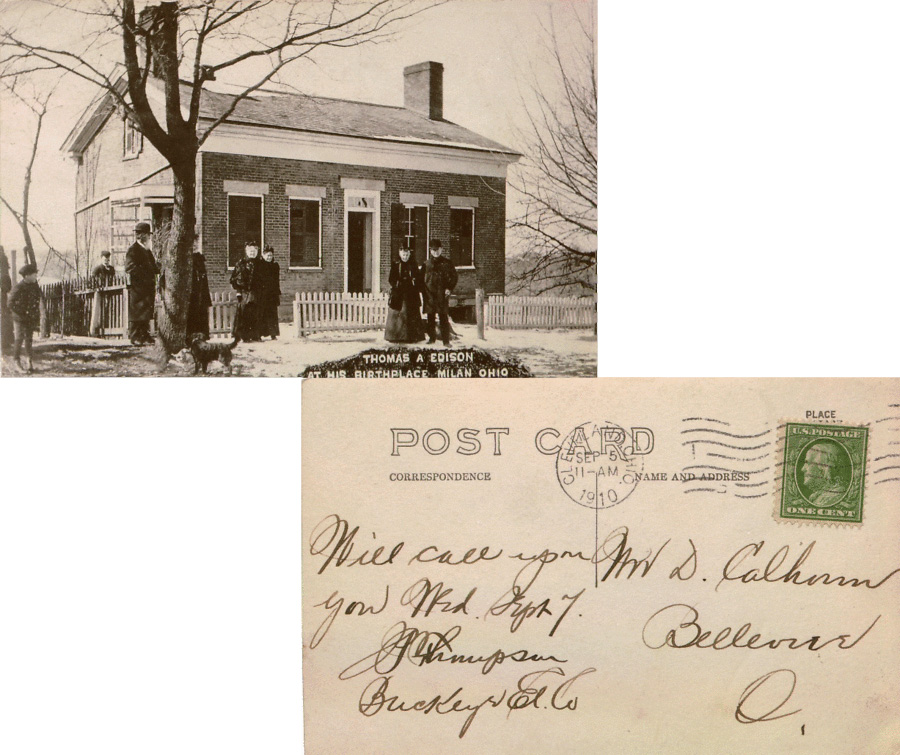 THOMAS A EDISON
AT HIS BIRTHPLACE MILAN OHIO
POST CARD
CORRESPONDENCE
NAME AND ADDRESS
PLACE
CLEVELAND, OHIO
SEP 5
11-AM
1910
U.S. POSTAGE
ONE CENT
Will call upon
you Wed. Sept 7.
Thompson
Buckeye El. Co
Mr D. Calhoun
Bellevue
O.